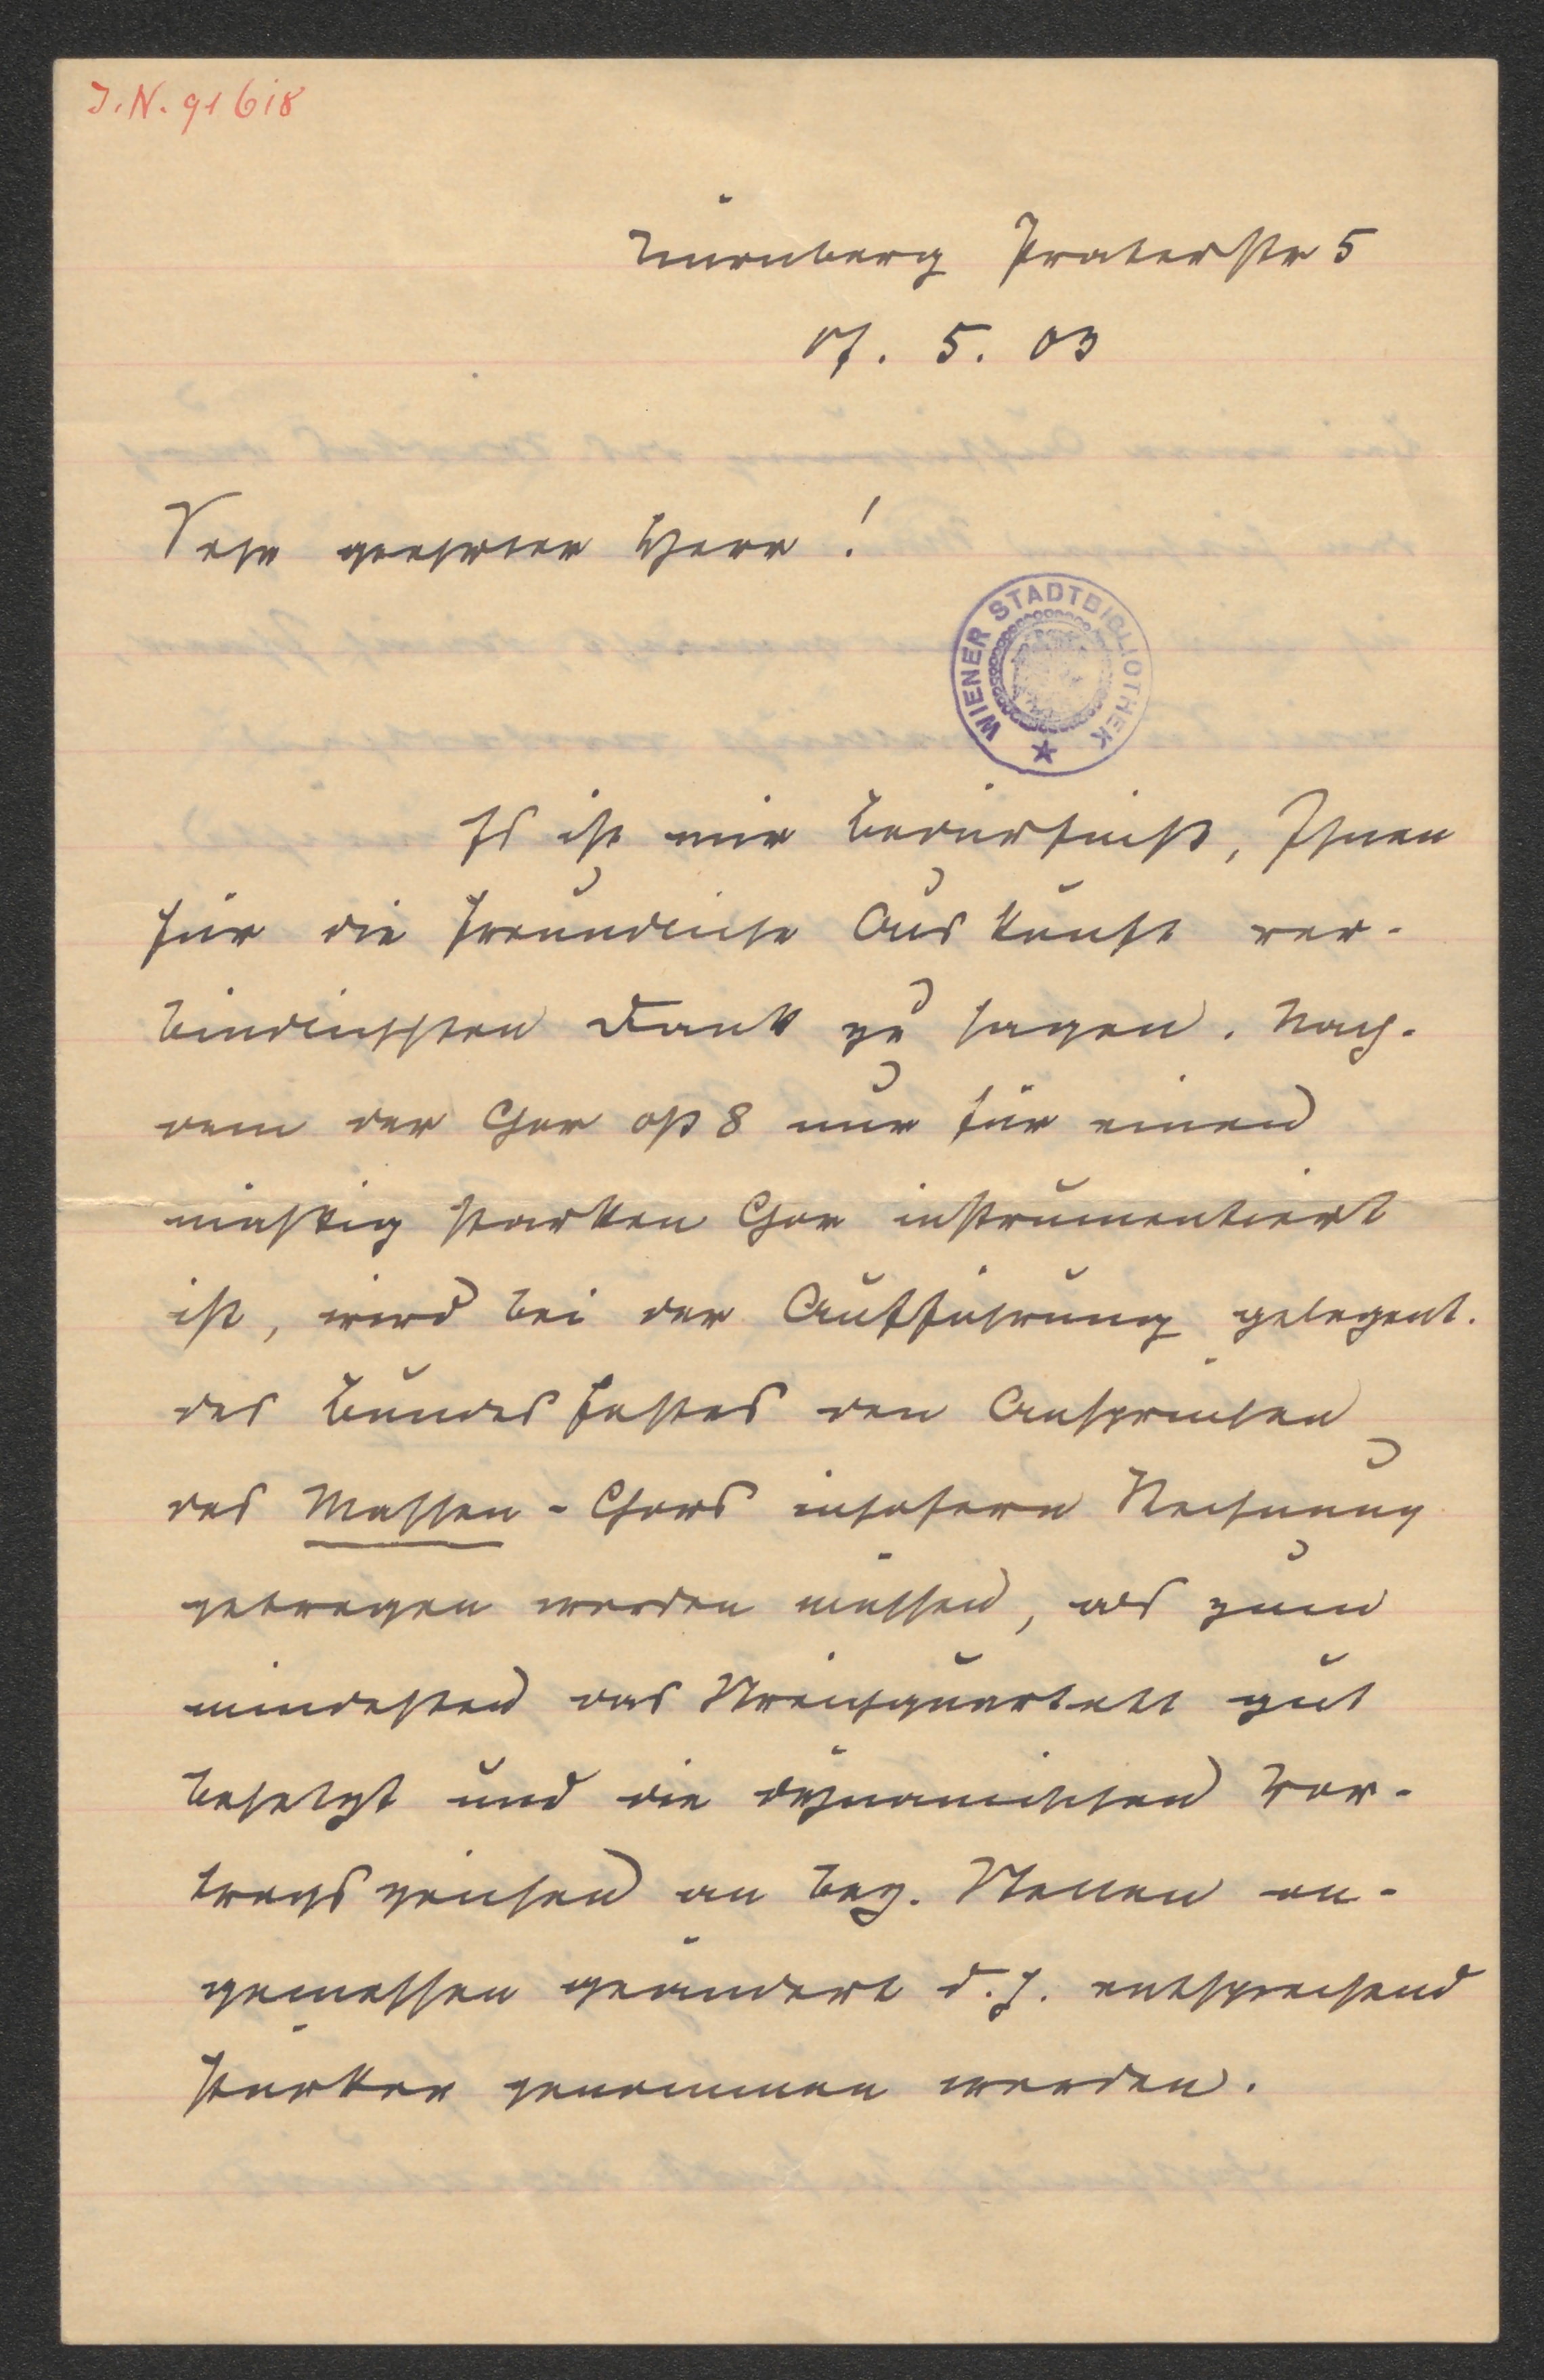 J. N. 91618
Nürnberg Praterstr 5
17. 5. 03
Sehr geehrter Herr!
WIENER STADTBIBLIOTHEK
Es ist mir Bedürfniß, Ihnen
für die freundliche Auskunft ver-
bindlichsten Dank zu sagen. Nach-
dem der Chor op 8 nur für einen
mäßig starken Chor instrumentiert
ist, wird bei der Aufführung gelegent.
des Bundesfestes den Ansprüchen
des Massen-Chors insofern Rechnung
getragen werden müssen, als zum
mindesten das Streichquartett gut
besetzt und die dynamischen Vor-
tragszeichen an bez. Stellen an-
gemessen geändert d. h. entsprechend
stärker genommen werden.